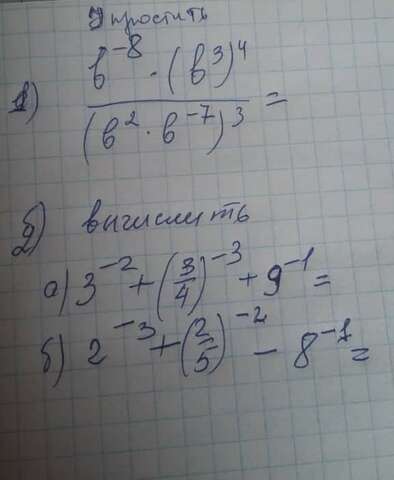 Упростить
1) (b^-8 · (b^3)^4) / (b^2 · b^-7)^3 =
2) вычислить
а) 3^-2 + (3/4)^-3 + 9^-1 =
б) 2^-3 + (2/5)^-2 - 8^-1 =